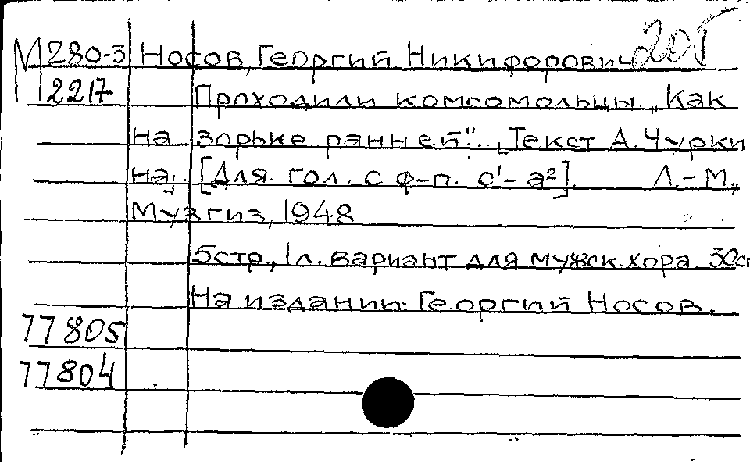 М 280-3 Носов, Георгий Никифорович
2217 Проходили комсомольцы „Как
на зорьке ранней". Текст А. Чурки
на. [Для гол. с ф-п. c¹-a²]. Л.-М.,
Музгиз, 1948
5стр., 1л. вариант для мужск. хора. 30с
На издании: Георгий Носов.
77805
77804